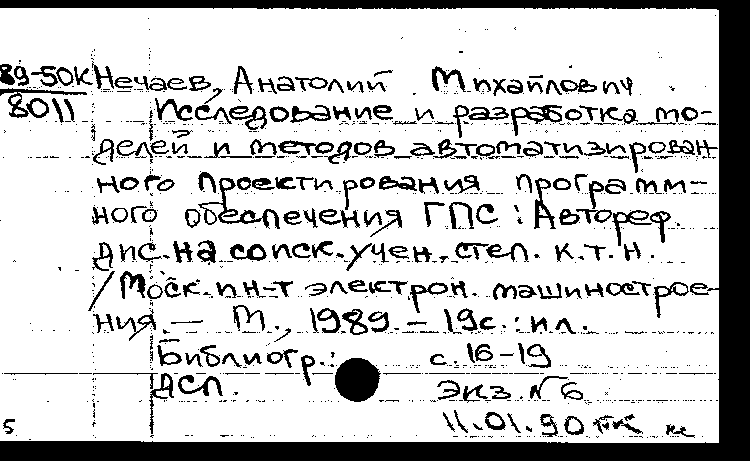 89-50К Нечаев, Анатолий Михайлович
8011 Исследование и разработка мо-
делей и методов автоматизирован
ного проектирования программ-
ного обеспечения ГПС : Автореф.
дис. на соиск. учен. степ. к.т.н.
/Моск. ин-т электрон. машинострое-
ния. — М., 1989. – 19с. : ил.
Библиогр.: с. 16-19
ДСП. Экз. № 6
5 11.01.90